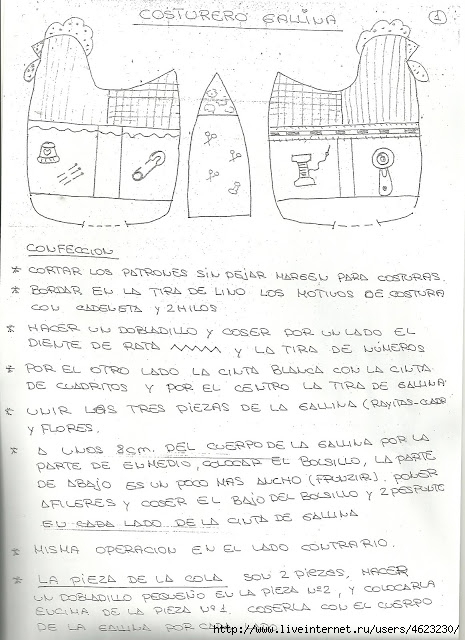 COSTURERO GALLINA
1
CONFECCION
* CORTAR LOS PATRONES SIN DEJAR MARGEN PARA COSTURAS.
* BORDAR EN LA TIRA DE LINO LOS MOTIVOS DE COSTURA
CON CADENETA Y 2 HILOS
* HACER UN DOBLADILLO Y COSER POR UN LADO EL
DIENTE DE RATA Y LA TIRA DE NÚMEROS
* POR EL OTRO LADO LA CINTA BLANCA CON LA CINTA
DE CUADRITOS Y POR EL CENTRO LA TIRA DE GALLINA
* UNIR LAS TRES PIEZAS DE LA GALLINA (RAYITAS-CUADR
Y FLORES.
* A UNOS 8cm. DEL CUERPO DE LA GALLINA POR LA
PARTE DE ENMEDIO, COLOCAR EL BOLSILLO, LA PARTE
DE ABAJO ES UN POCO MAS ANCHO (FRUNZIR). PONER
AFILERES Y COSER EL BAJO DEL BOLSILLO Y 2 PESPUNTE
EN CADA LADO DE LA CINTA DE GALLINA
* MISMA OPERACION EN EL LADO CONTRARIO.
* LA PIEZA DE LA COLA SON 2 PIEZAS, HACER
UN DOBLADILLO PEQUEÑO EN LA PIEZA Nº2, Y COLOCARLA
ENCIMA DE LA PIEZA Nº1. COSERLA CON EL CUERPO
DE LA GALLINA POR CADA LADO
http://www.liveinternet.ru/users/4623230/